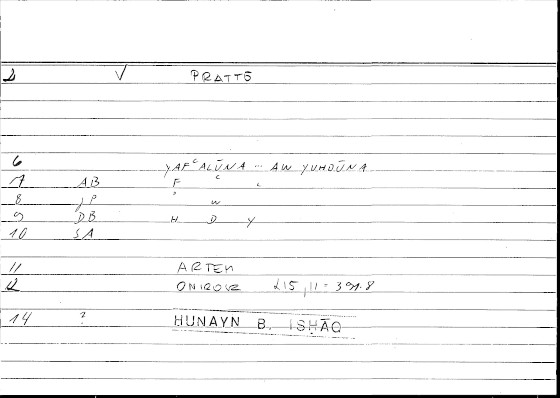 2 √ PRATTŌ
6 YAFʿALŪNA ... AW YUHDŪNA
7 AB F ʿ L
8 JP W
9 DB H D Y
10 SA
11 ARTEM
12 ONIROCR 215,11 = 391.8
14 ? HUNAYN B. ISḤĀQ